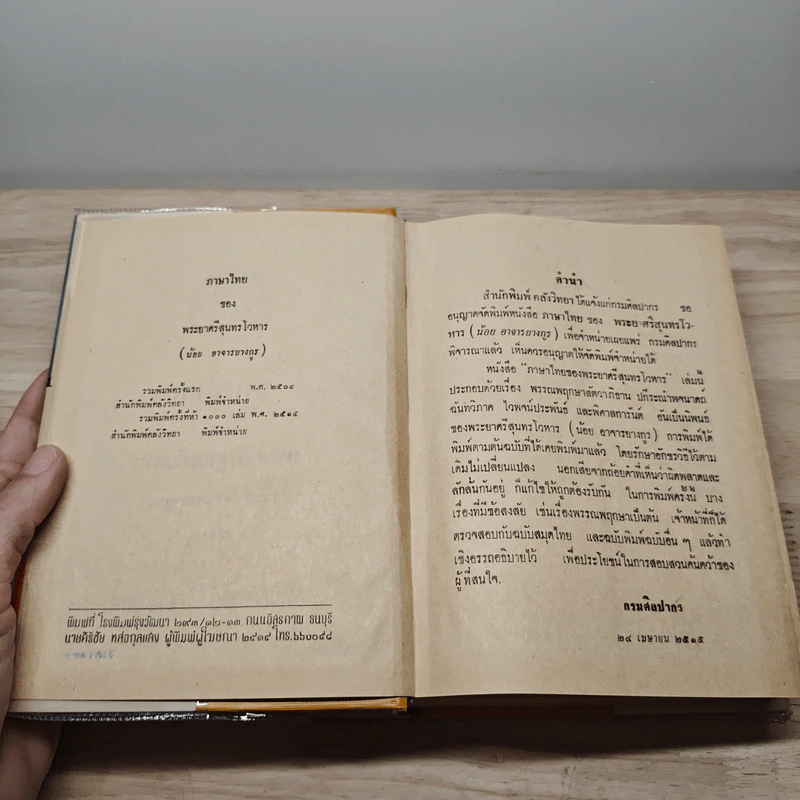 ภาษาไทย
ของ
พระยาศรีสุนทรโวหาร
(น้อย อาจารยางกูร)
รวมพิมพ์ครั้งแรก พ.ศ. ๒๕๐๔
สำนักพิมพ์คลังวิทยา พิมพ์จำหน่าย
รวมพิมพ์ครั้งที่ห้า ๑๐๐๐ เล่ม พ.ศ. ๒๕๑๔
สำนักพิมพ์คลังวิทยา พิมพ์จำหน่าย
พิมพ์ที่ โรงพิมพ์รุ่งวัฒนา ๒๙๓/๑๒-๑๓ ถนนอิสรภาพ ธนบุรี
นายศิริชัย ทล่อกุลแสง ผู้พิมพ์ผู้โฆษณา ๒๕๑๕ โทร.๖๖๐๐๔๘
คำนำ
สำนักพิมพ์ คลังวิทยา ได้แจ้งแก่กรมศิลปากร ขอ
อนุญาตจัดพิมพ์หนังสือ ภาษาไทย ของ พระยาศรีสุนทรโว-
หาร (น้อย อาจารยางกูร) เพื่อจำหน่ายเผยแพร่ กรมศิลปากร
พิจารณาแล้ว เห็นควรอนุญาตให้จัดพิมพ์จำหน่ายได้
หนังสือ "ภาษาไทยของพระยาศรีสุนทรโวหาร" เล่มนี้
ประกอบด้วยเรื่อง พรรณพฤกษาสัตวาภิธาน ปกีระณำพจนาดถ์
ฉันท์วิภาค ไวพจน์ประพันธ์ และพิศาลการันต์ อันเป็นนิพนธ์
ของพระยาศรีสุนทรโวหาร (น้อย อาจารยางกูร) การพิมพ์ได้
พิมพ์ตามต้นฉบับที่ได้เคยพิมพ์มาแล้ว โดยรักษาอักขรวิธีไว้ตาม
เดิมไม่เปลี่ยนแปลง นอกเสียจากถ้อยคำที่เห็นว่าผิดพลาดและ
ลักลั่นกันอยู่ ก็แก้ไขให้ถูกต้องรับกัน ในการพิมพ์ครั้งนี้ บาง
เรื่องที่มีข้อสงสัย เช่นเรื่องพรรณพฤกษาเป็นต้น เจ้าหน้าที่ก็ได้
ตรวจสอบกับฉบับสมุดไทย และฉบับพิมพ์ฉบับอื่น ๆ แล้วทำ
เชิงอรรถอธิบายไว้ เพื่อประโยชน์ในการสอบสวนค้นคว้าของ
ผู้ที่สนใจ.
กรมศิลปากร
๒๔ เมษายน ๒๕๑๕